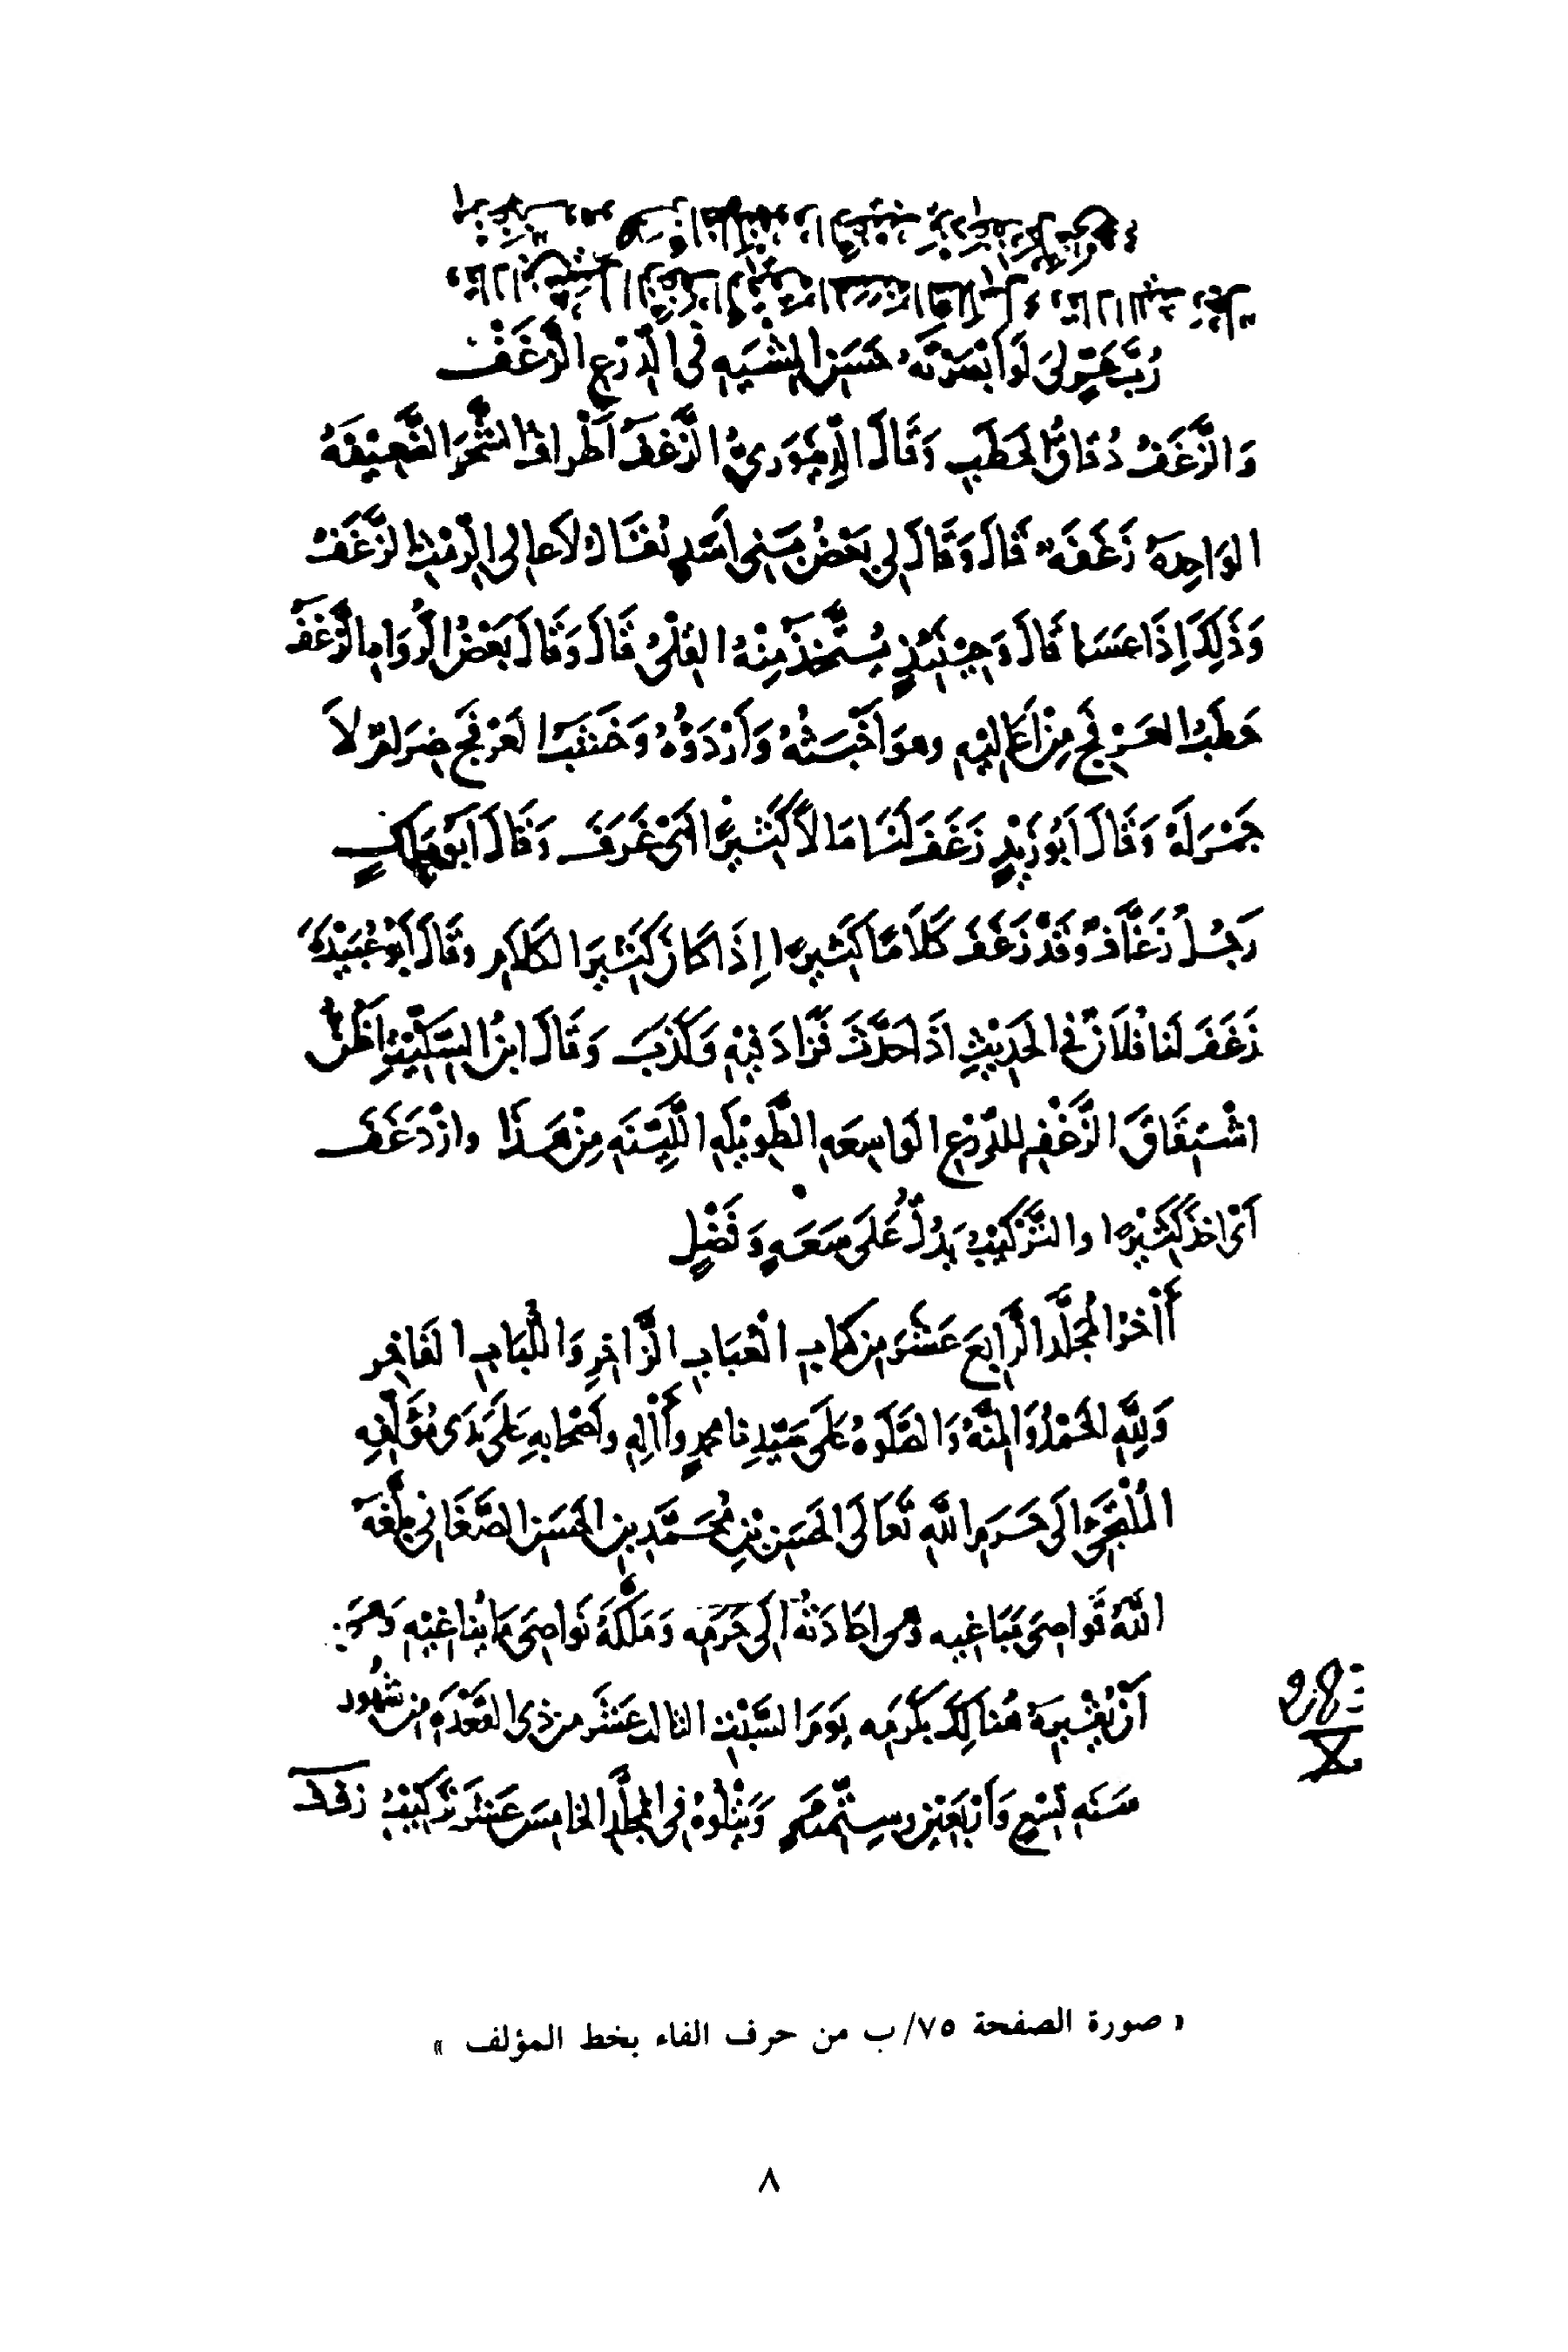 رُبَّ عَمٍّ لِيَ لَوْ أَبْصَرْتَهُ حَسَنِ المِشْيَةِ فِي الدِّرْعِ الزَّغَفْ
وَالزَّغَفُ دُقَاقُ الحَطَبِ وَقَالَ الدِّينَوَرِيُّ الزَّغَفُ أَطْرَافُ الشَّجَرِ الضَّعِيْفَةُ
الوَاحِدَةُ زَغَفَةٌ قَالَ وَقَالَ لِي بَعْضُ بَنِي أَسَدٍ يُقَالُ لِأَعَالِي الرِّمْثِ الزَّغَفُ
وَذَلِكَ إِذَا عَسَا قَالَ وَحِيْنَئِذٍ يُتَّخَذُ مِنْهُ القِلْيُ قَالَ وَقَالَ بَعْضُ الرُّوَاةِ الزَّغَفُ
حَطَبُ العَرْفَجِ مِنْ أَعَالِيْهِ وهوَ أَخْبَثُهُ وَأَرْدَؤُهُ وَخَشَبُ العَرْفَجِ ضِرَامٌ لاَ
جَمْرَ لَهُ وَقَالَ أَبُو زَيْدٍ زَغَفَ لَنَا مَالاً كَثِيْرًا أَيْ غَرَفَ وَقَالَ أَبُو مَالِكٍ
رَجُلٌ زَغَّافٌ وَقَدْ زَغَفَ كَلَامًا كَثِيْرًا إِذَا كَانَ كَثِيْرَ الكَلَامِ وقَالَ أَبُو عُبَيْدَةَ
زَغَفَ لَنَا فُلَانٌ في الحَدِيْثِ إذَا حَدَّثَ فَزَادَ فِيْهِ وَكَذَبَ وَقَالَ ابْنُ السِّكِّيْتِ أَظُنُّ
اشْتِقَاقَ الزَّغْفِ للدِّرْعِ الوَاسِعَةِ الطَّوِيْلَةِ اللَّيِّنَةِ مِنْ هَذَا وازْدَغَفَ
أَيْ أخَذَ كَثِيْرًا والتَّرْكِيْبُ يَدُلُّ عَلَى سَعَةٍ وَفَضْلٍ
أآخِرُ المُجَلَّدِ الرَّابِعَ عَشَرَ مِنْ كِتَابِ العُبَابِ الزَّاخِرِ وَاللُّبَابِ الفَاخِرِ
وَلِلَّهِ الحَمْدُ وَالمِنَّةُ وَالصَّلَوةُ عَلَى سَيِّدِنا محمدٍ وأآلِهِ وأصْحَابِهِ عَلَى يَدَيْ مُؤَلِّفِهِ
المُلْتَجِئِ إِلَى حَرَمِ اللَّهِ تَعَالَى الحَسَنِ بْنِ مُحَمَّدِ بنِ الحَسَنِ الصَّغَانِي بَلَّغَهُ
اللَّهُ قَوَاصِيَ مَبَاغِيهِ وهي إعَادَتُهُ إِلَى حَرَمِهِ وَمَلَّكَهُ نَواصِيَ مَا يُنَاغِيْهِ وهي
أَنْ يُقِيْمَهُ هُنَالِكَ بِكَرَمِهِ يَوْمَ السَّبْتِ الثالث عَشَرَ من ذي القَعْدَةِ من شُهُور
سَنَةِ تِسْعٍ وَأَرْبَعِيْنَ وسِتِّمِئَةٍ وَيَتْلُوْهُ في المُجَلَّدِ الخَامِسَ عَشَرَ تَرْكِيْبُ زفف
« صورة الصفحة ٧٥/ب من حرف الفاء بخط المؤلف »
٨